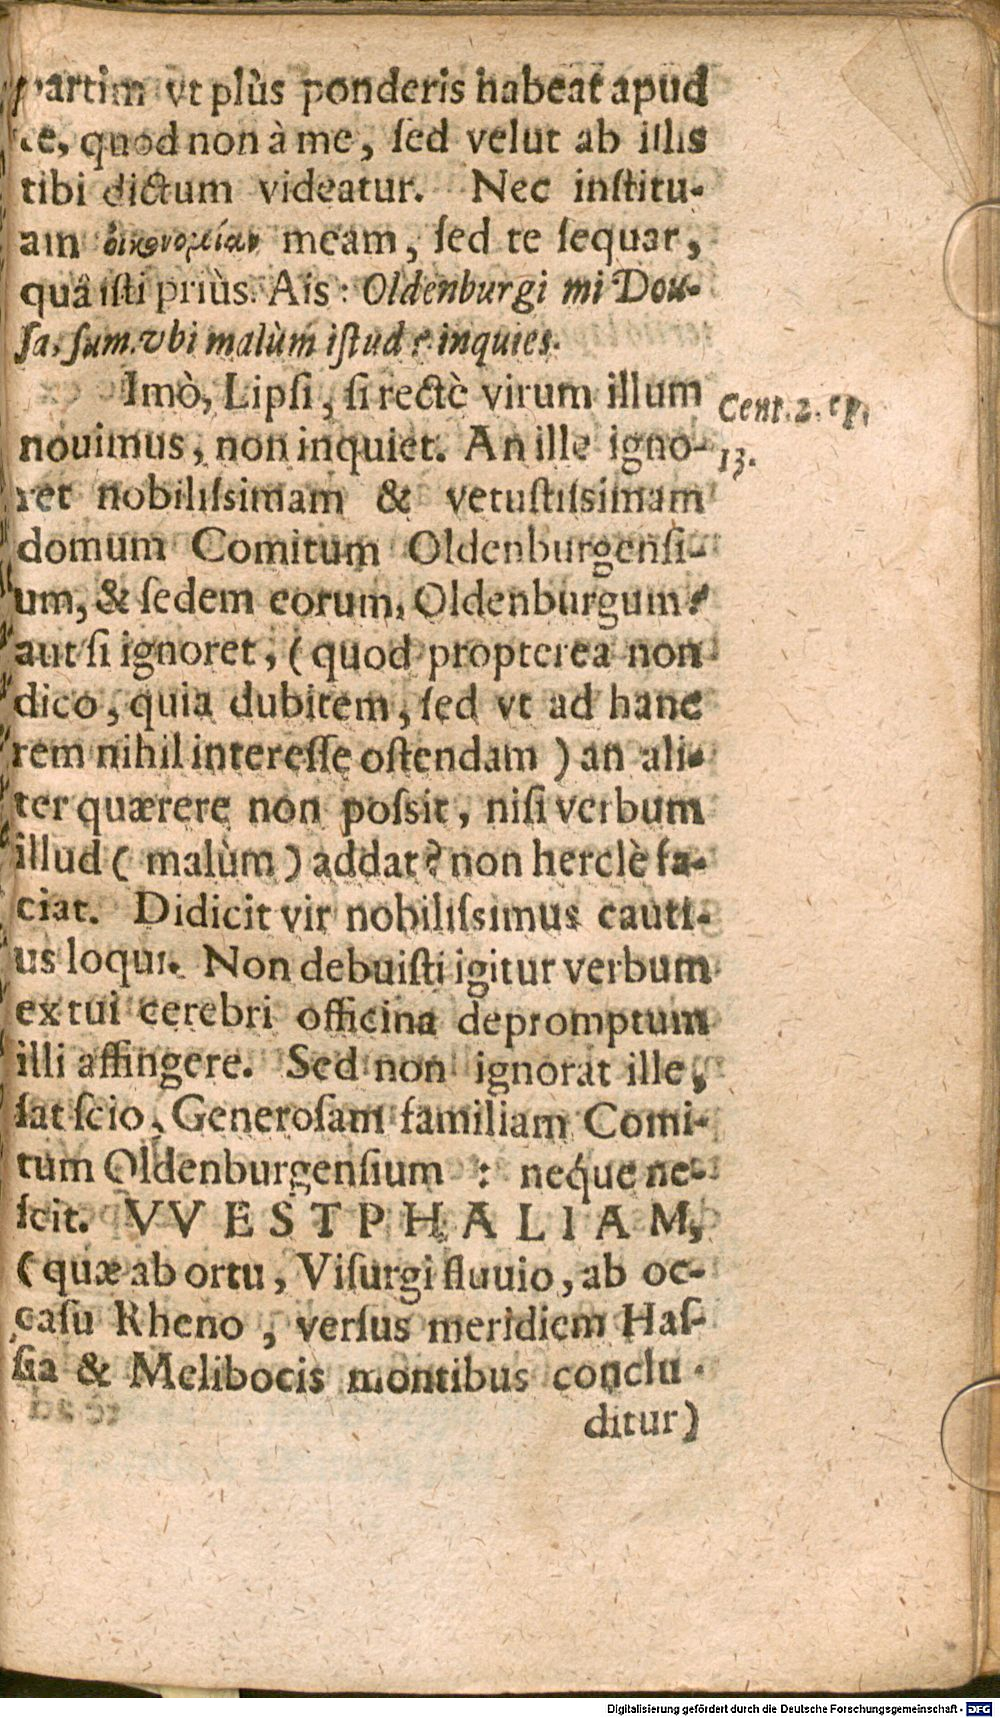 partim vt plùs ponderis habeat apud
te, quod non à me, ſed velut ab illis
tibi dictum videatur. Nec inſtitu-
am οἰκονομίαν meam, ſed te ſequar,
quâ iſti priùs. Ais: Oldenburgi mi Dou-
ſa, ſum. vbi malùm iſtud? inquies.
Imò, Lipſi, ſi rectè virum illum
nouimus, non inquiet. An ille igno-
ret nobiliſsimam & vetuſtiſsimam
domum Comitum Oldenburgenſi-
um, & ſedem eorum, Oldenburgum?
aut ſi ignoret, (quod propterea non
dico, quia dubitem, ſed vt ad hanc
rem nihil intereſſe oſtendam) an ali-
ter quærere non poſsit, niſi verbum
illud (malùm) addat? non herclè fa-
ciat. Didicit vir nobiliſsimus cauti-
us loqui. Non debuiſti igitur verbum
ex tui cerebri officina depromptum
illi affingere. Sed non ignorat ille,
ſat ſcio, Generoſam familiam Comi-
tum Oldenburgenſium : neq́ue ne-
ſcit. VVESTPHALIAM,
(quæ ab ortu, Viſurgi fluuio, ab oc-
caſu Rheno, verſus meridiem Haſ-
ſia & Melibocis montibus conclu-
ditur)
Cent. 2. ep.
13.
Digitalisierung gefördert durch die Deutsche Forschungsgemeinschaft - DFG